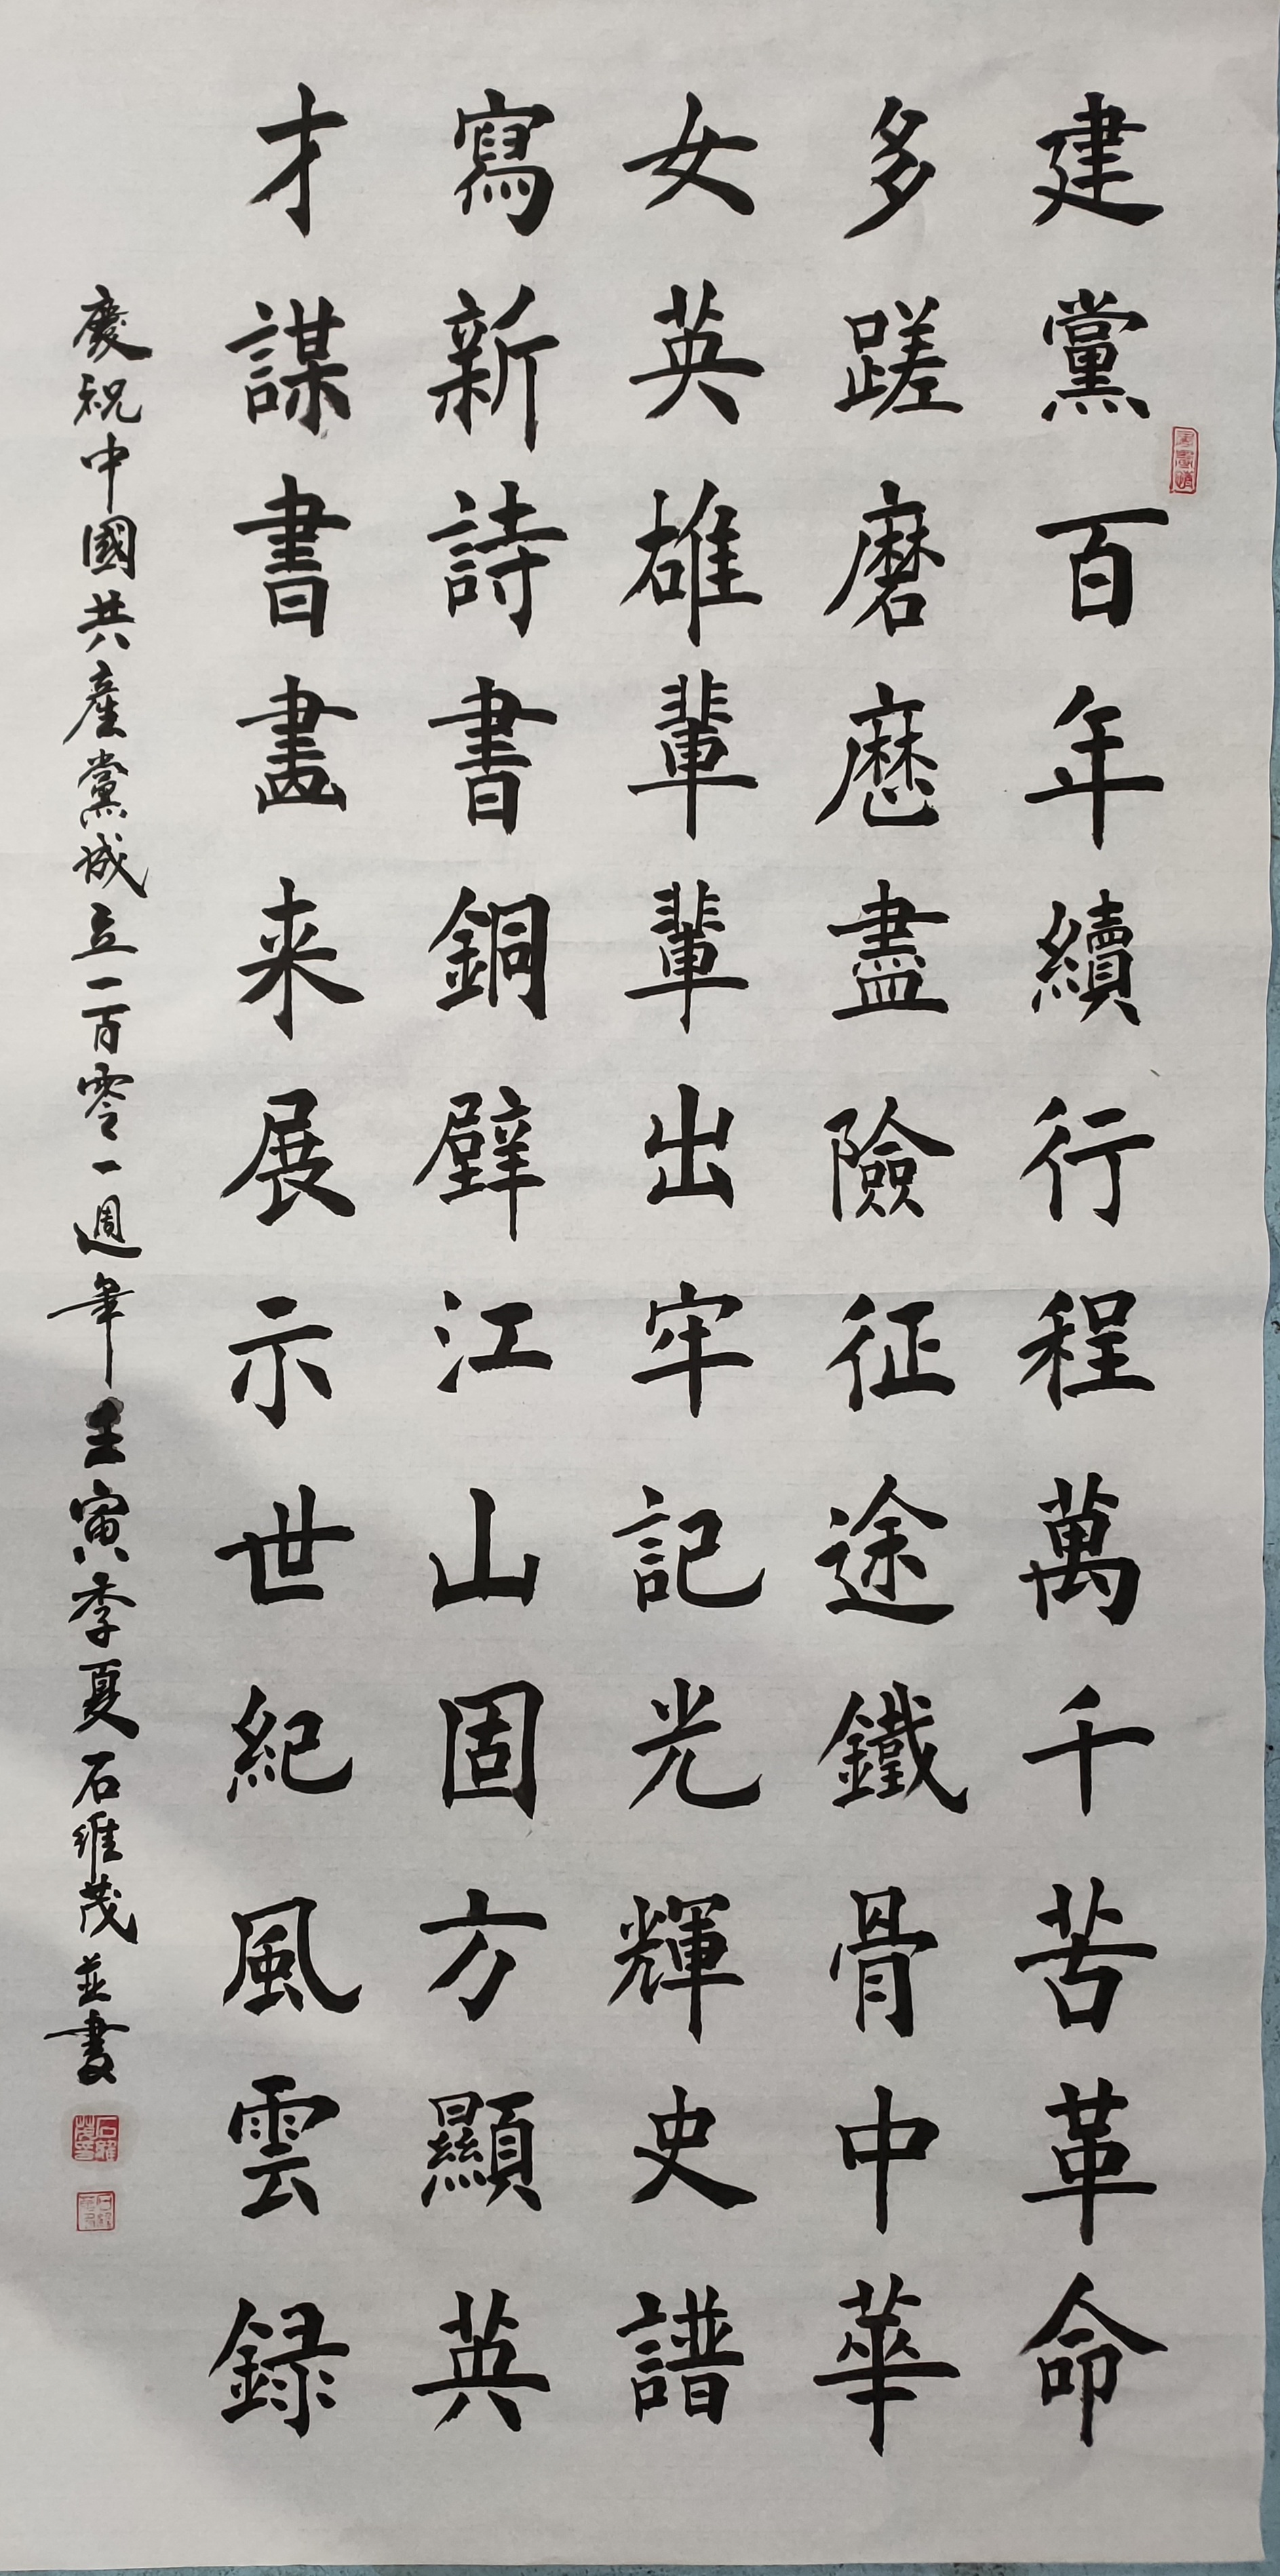 建黨百年續行程萬千苦革命
多蹉磨歷盡險征途鐵骨中華
女英雄輩輩出牢記光輝史譜
寫新詩書銅壁江山固方顯英
才謀書畫来展示世紀風雲録
慶祝中國共產黨成立一百零一週年壬寅季夏石維茂並書